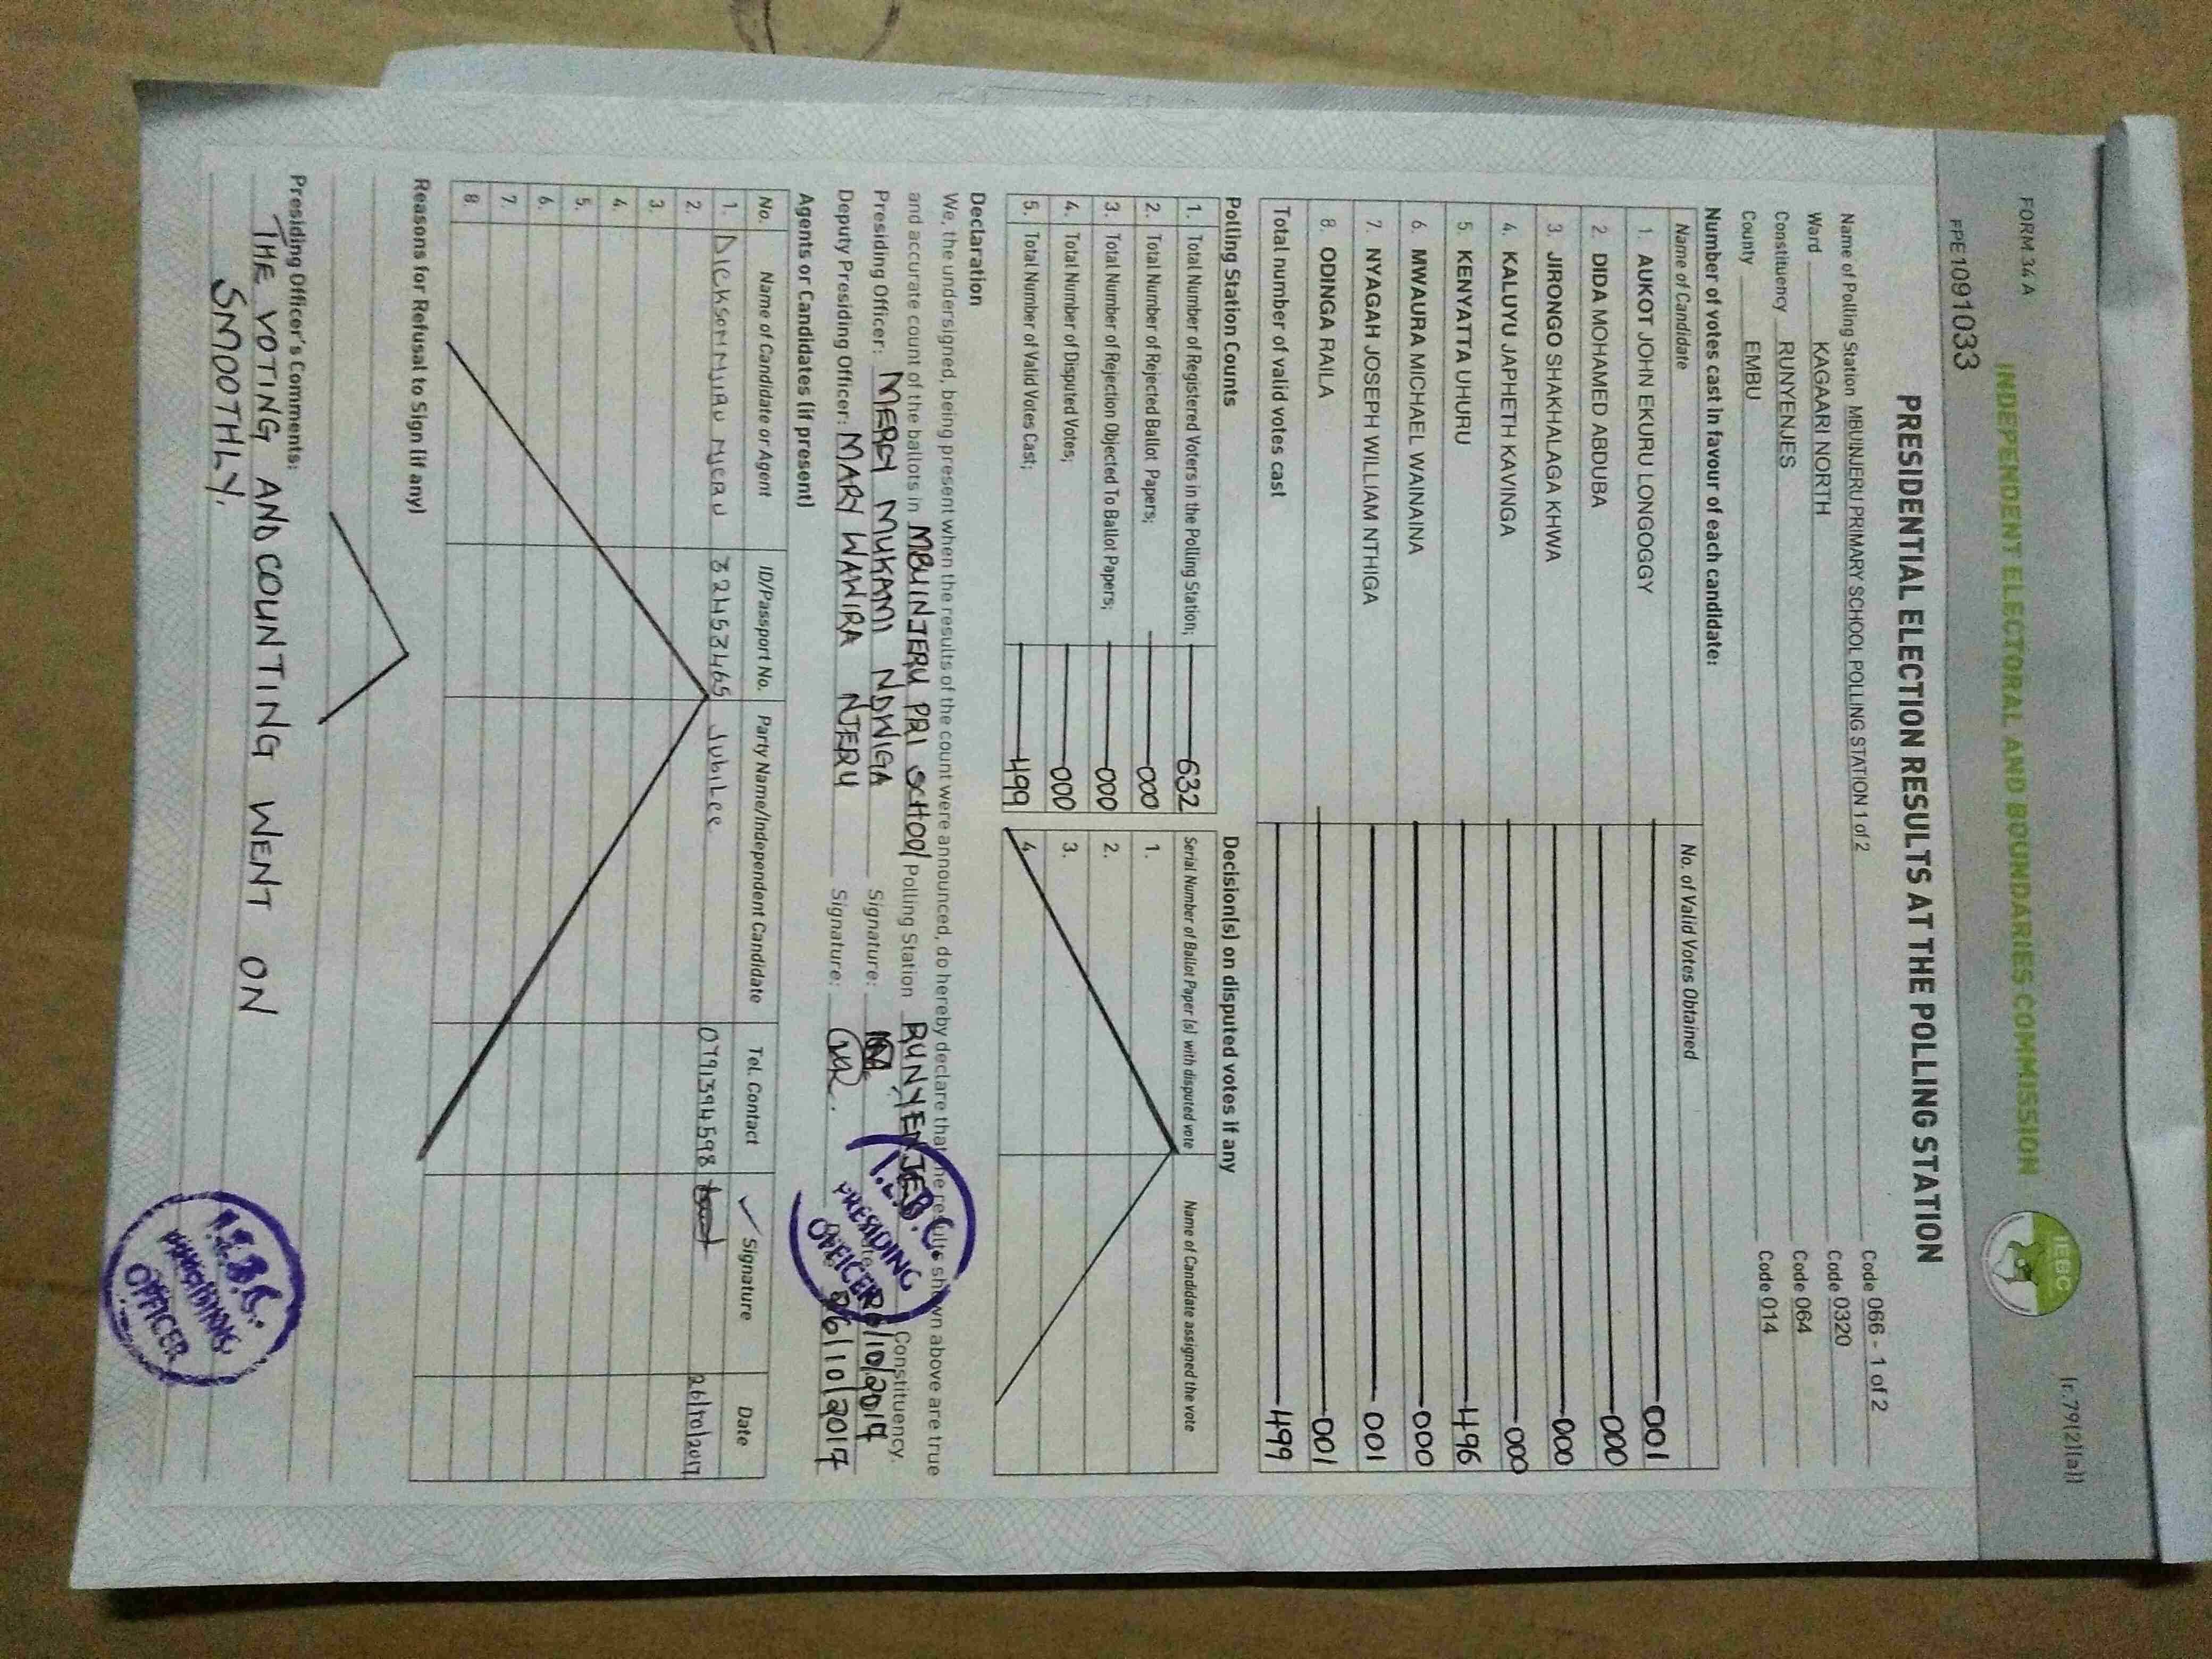 FORM 34 A
[r.79(2)(a)]
INDEPENDENT ELECTORAL AND BOUNDARIES COMMISSION
IEBC
PPE1091033
PRESIDENTIAL ELECTION RESULTS AT THE POLLING STATION
Name of Polling Station MBUINJERU PRIMARY SCHOOL POLLING STATION 1 of 2 Code 066 - 1 of 2
Ward KAGAARI NORTH Code 0320
Constituency RUNYENJES Code 064
County EMBU Code 014
Number of votes cast in favour of each candidate:
Name of Candidate No. of Valid Votes Obtained
1. AUKOT JOHN EKURU LONGOGGY 001
2. DIDA MOHAMED ABDUBA 000
3. JIRONGO SHAKHALAGA KHWA 000
4. KALUYU JAPHETH KAVINGA 000
5. KENYATTA UHURU 496
6. MWAURA MICHAEL WAINAINA 000
7. NYAGAH JOSEPH WILLIAM NTHIGA 001
8. ODINGA RAILA 001
Total number of valid votes cast 499
Polling Station Counts
1. Total Number of Registered Voters in the Polling Station; 632
2. Total Number of Rejected Ballot Papers; 000
3. Total Number of Rejection Objected To Ballot Papers; 000
4. Total Number of Disputed Votes; 000
5. Total Number of Valid Votes Cast; 499
Decision(s) on disputed votes if any
Serial Number of Ballot Paper (s) with disputed vote Name of Candidate assigned the vote
1.
2.
3.
4.
Declaration
We, the undersigned, being present when the results of the count were announced, do hereby declare that the results shown above are true
and accurate count of the ballots in MBUINJERU PRI SCHOOL Polling Station RUNYENJES Constituency.
Presiding Officer: MERCY MUKAMI NDWIGA Signature: Date 26/10/2017
Deputy Presiding Officer: MARY WAWIRA NJERU Signature: Date 26/10/2017
I.E.B.C.
PRESIDING
OFFICER
Agents or Candidates (if present)
No. Name of Candidate or Agent ID/Passport No. Party Name/Independent Candidate Tel. Contact Signature Date
1. Dickson Njiru Njeru 32453465 Jubilee 0791394598 26/10/2017
2.
3.
4.
5.
6.
7.
8.
Reasons for Refusal to Sign (if any)
Presiding Officer's Comments:
THE VOTING AND COUNTING WENT ON
SMOOTHLY.
I.E.B.C.
PRESIDING
OFFICER